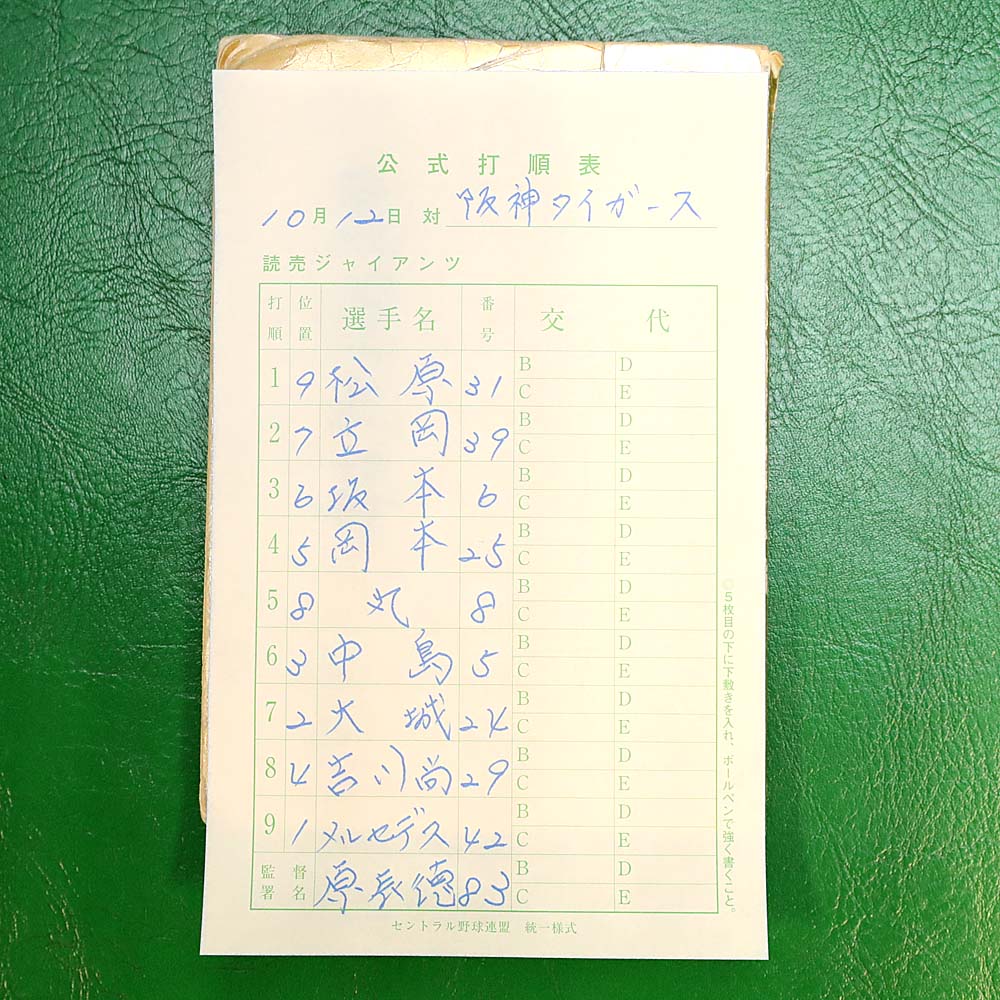 公式打順表
10月12日 対 阪神タイガース
読売ジャイアンツ
打順 位置 選手名 番号 交代
1 9 松原 31 B D C E
2 7 立岡 39 B D C E
3 6 坂本 6 B D C E
4 5 岡本 25 B D C E
5 8 丸 8 B D C E
6 3 中島 5 B D C E
7 2 大城 24 B D C E
8 4 吉川尚 29 B D C E
9 1 メルセデス 42 B D C E
監督署名 原辰徳 83 B D C E
セントラル野球連盟 統一様式
◎5枚目の下に下敷きを入れ、ボールペンで強く書くこと。